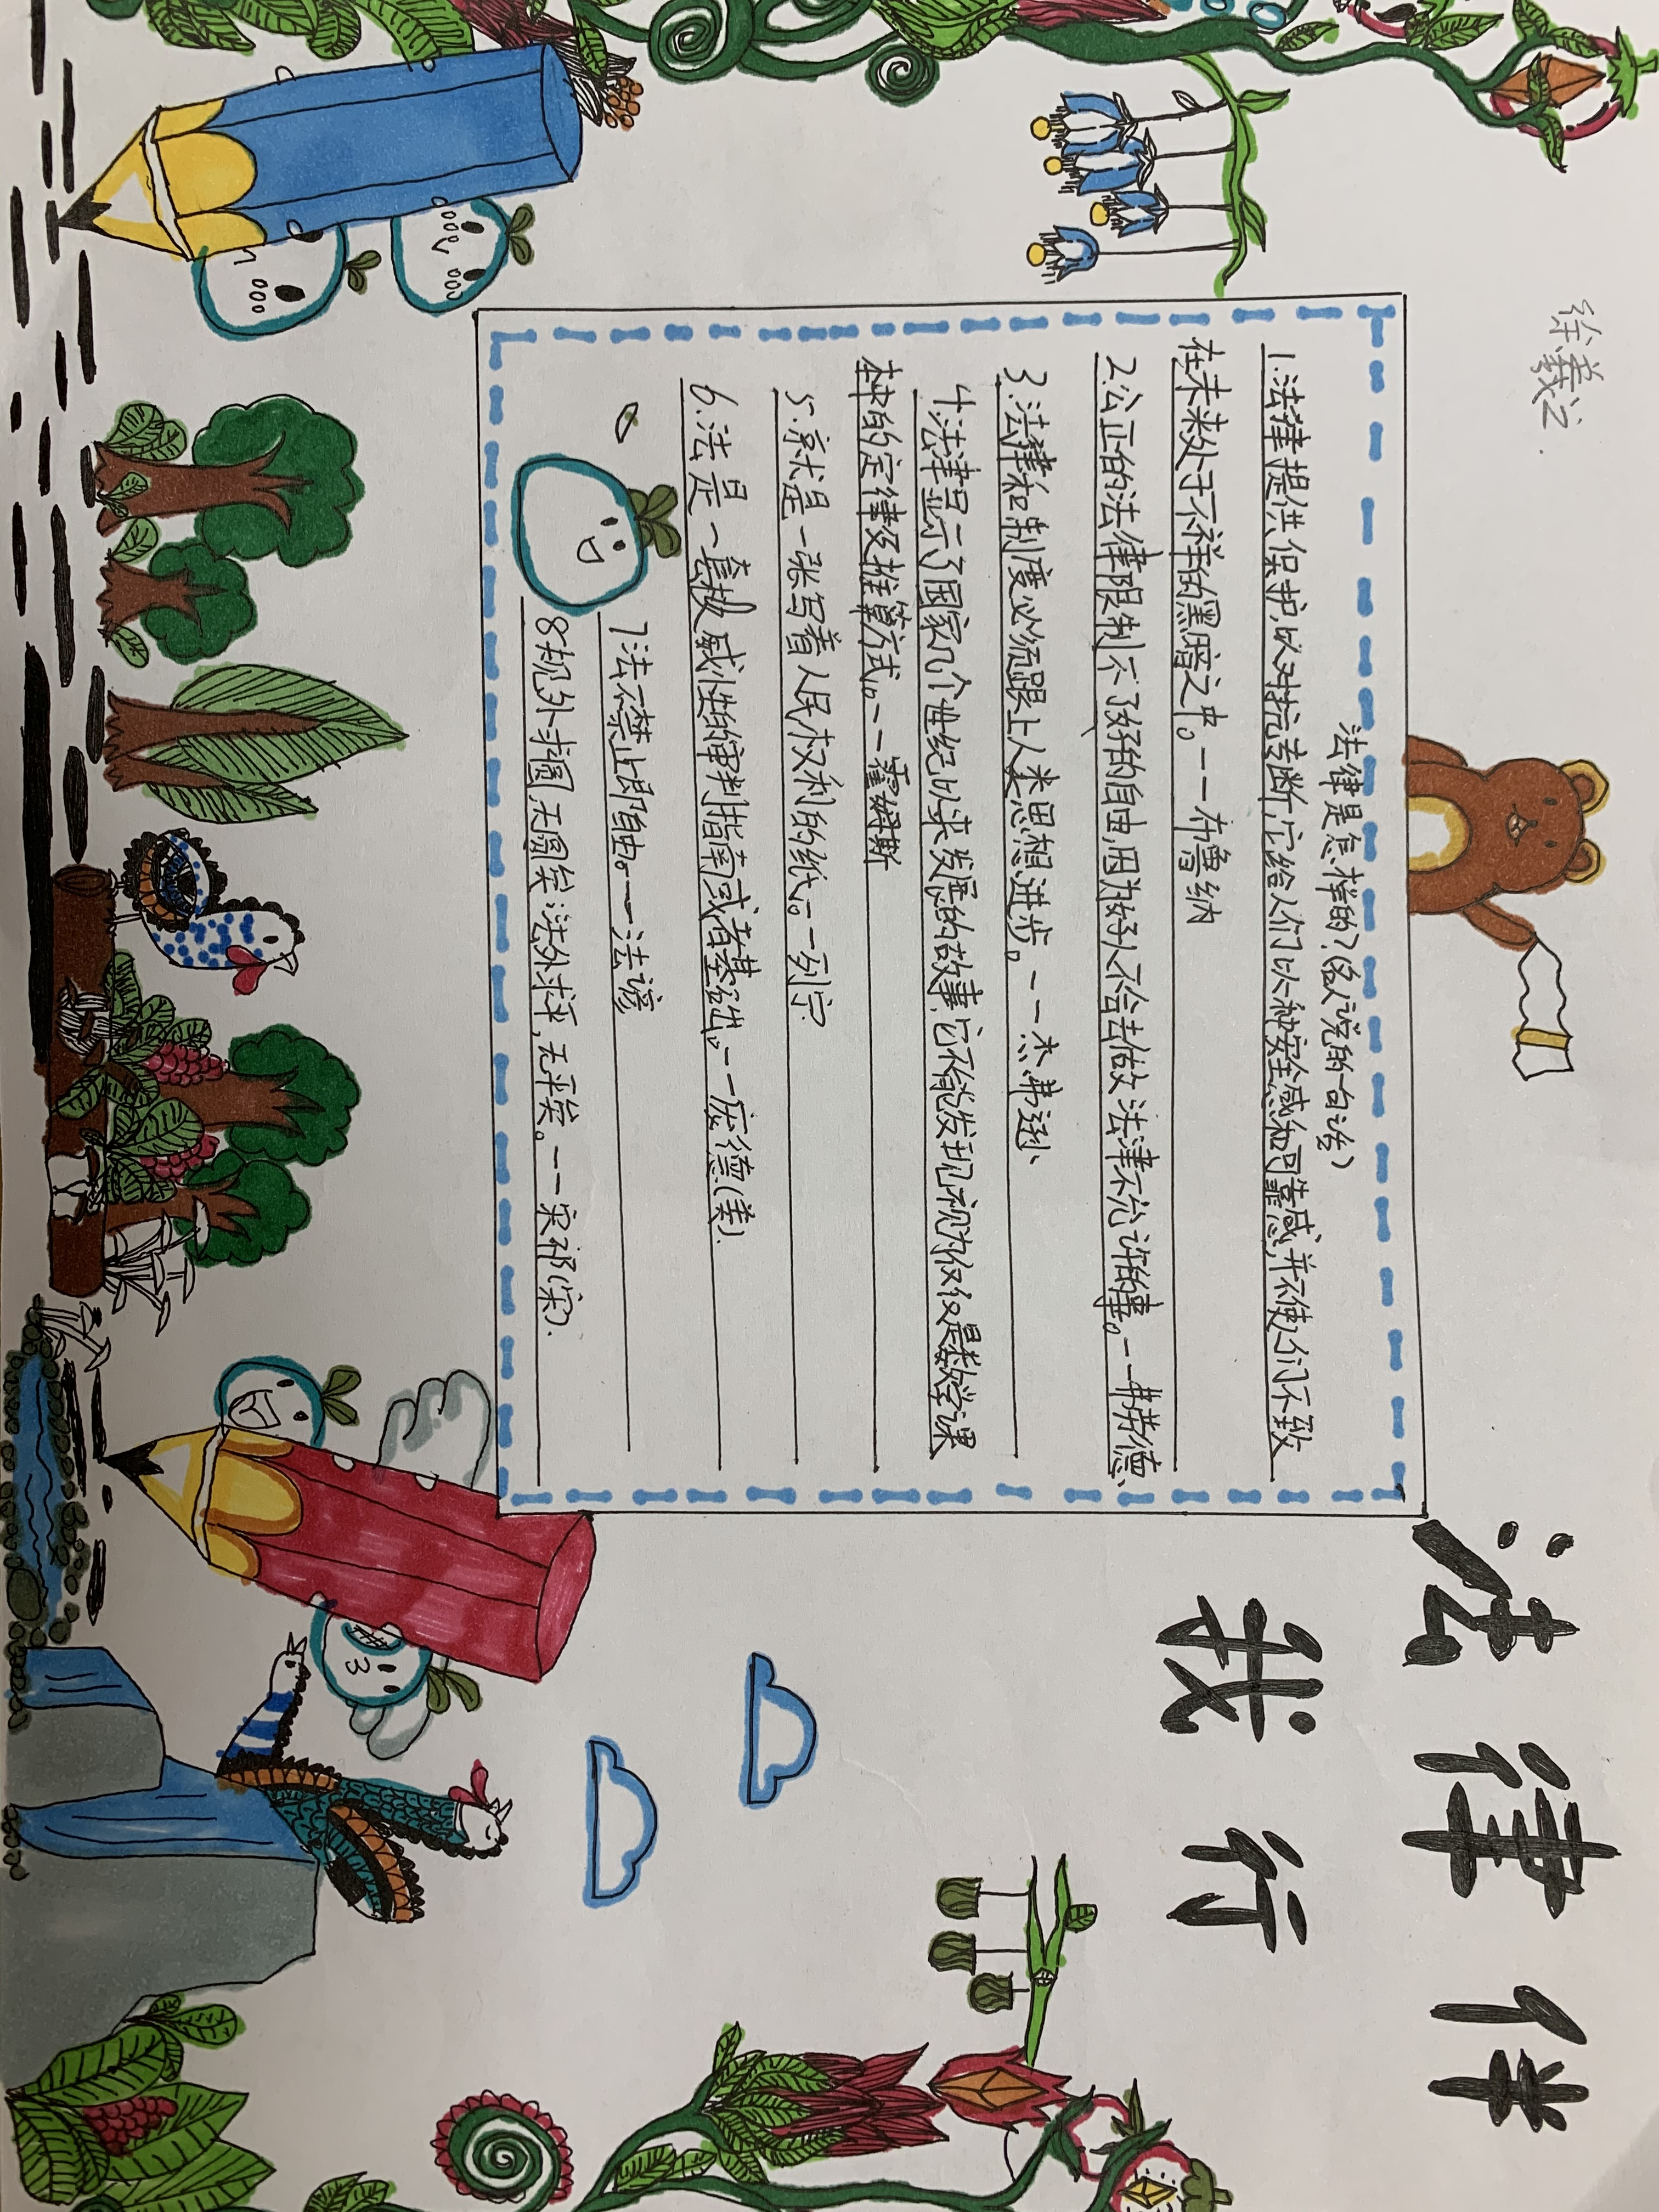 徐羲之.
法律伴
我行
法律是怎样的?(名人说的句话)
1.法律提供保护以对抗专断,它给人们以一种安全感和可靠感,并不使人们不致
在未来处于不祥的黑暗之中。——布鲁纳
2.公正的法律限制不了好的自由,因为好人不会去做法津不允许的事。——弗劳德
3.法律和制度必须跟上人类思想进步。——杰弗逊
4.法津显示了国家几个世纪以来发展的故事,它不能发现视为仅仅是数学课
本中的定律及推算方式。——霍姆斯
5.就是一张写着人民权利的纸。—列宁
6.法是一套权威性的审判指南或者基础。——庞德(美).
7法不禁止即自由。——法谚
8规外求圆,无圆矣,法外求平,无平矣。——宋祁(宋).